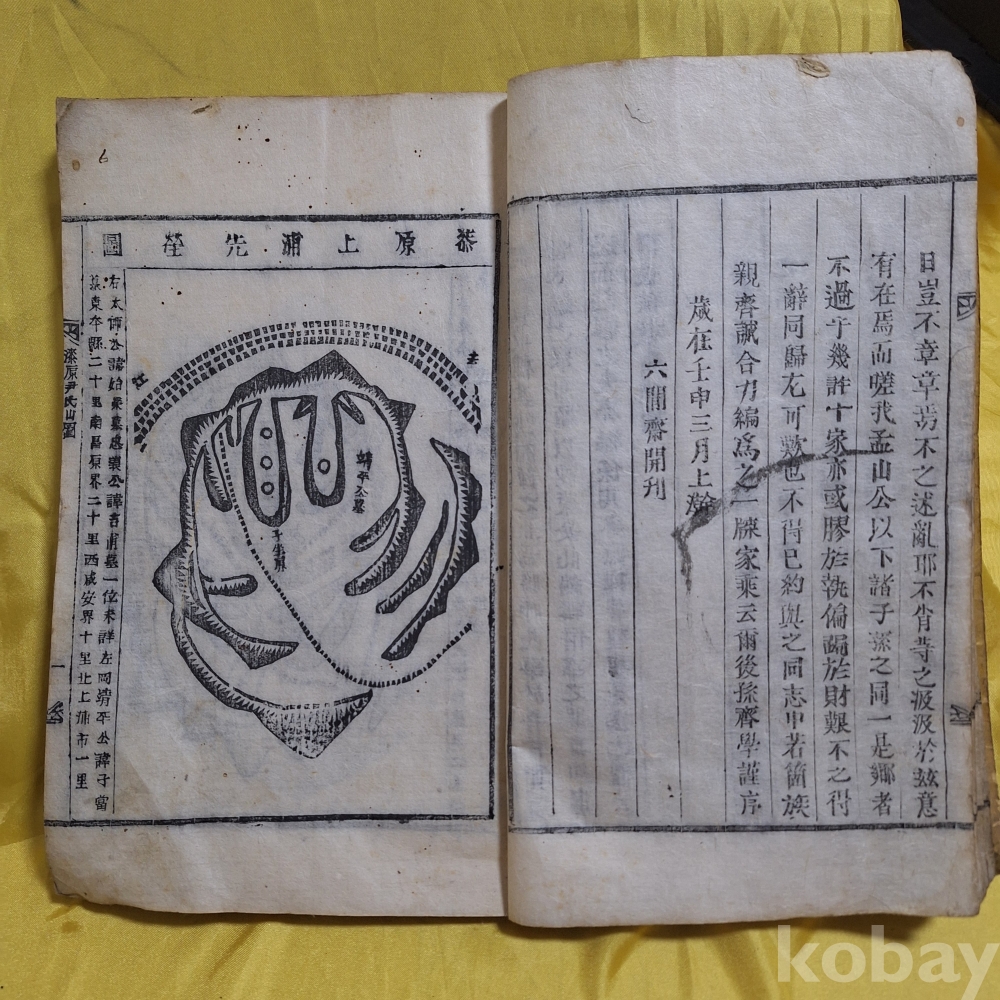 日豈不章章焉不之述亂耶不肖等之汲汲於玆意
有在焉而嗟我孟山公以下諸子孫之同一是鄕者
不過乎幾許十家亦或膠於執偏蹰於財艱不之得
一辭同歸尤可歎也不得已約與之同志中若箇族
親齊誠合力編爲之一牒家乘云爾後孫齊學謹序
歲在壬申三月上澣
六閒齋開刊
漆原上浦先塋圖
靖平公墓
子坐原
右太師公諱始榮墓 公諱吉甫墓一位未詳左岡靖平公諱子當
墓東本縣二十里南昌原界二十里西咸安界十里北上浦市一里
漆原尹氏山圖
一
6
kobay